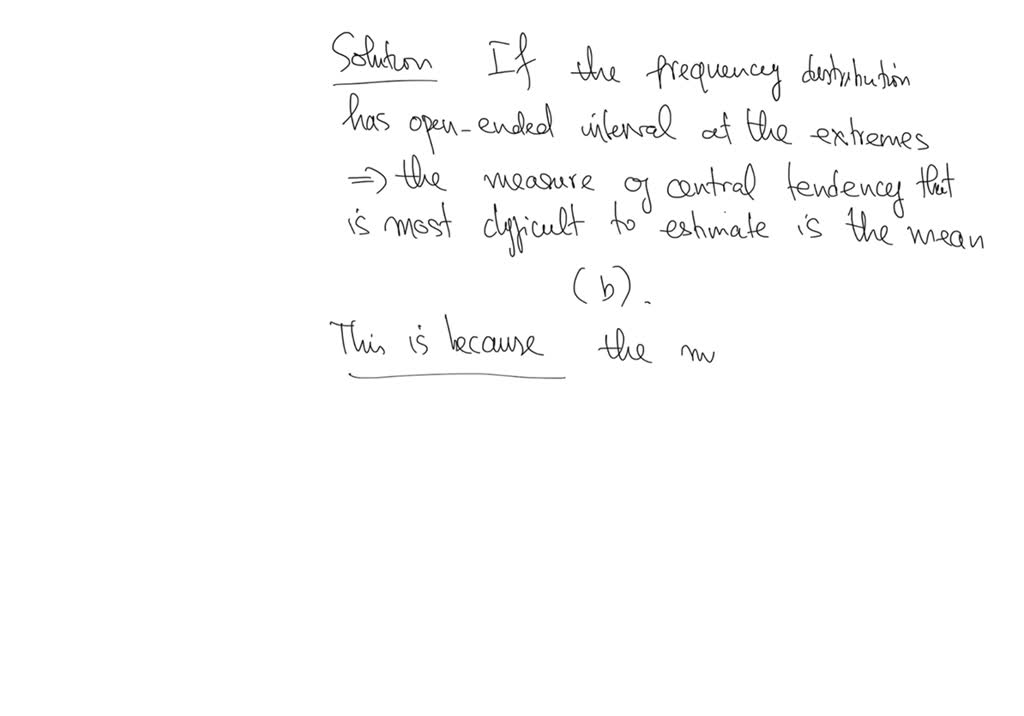 Solution If the frequency distribution
has open-ended interval at the extremes
⇒ the measure of central tendency that
is most difficult to estimate is the mean
(b).
This is because the m